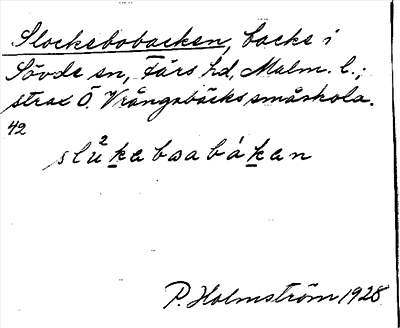 Slockebobacken, backe i
Sövde sn, Färs hd, Malm. l.;
strax Ö. Vrångabäcks småskola.
42
slu²kabɷabákan
P. Holmström 1928